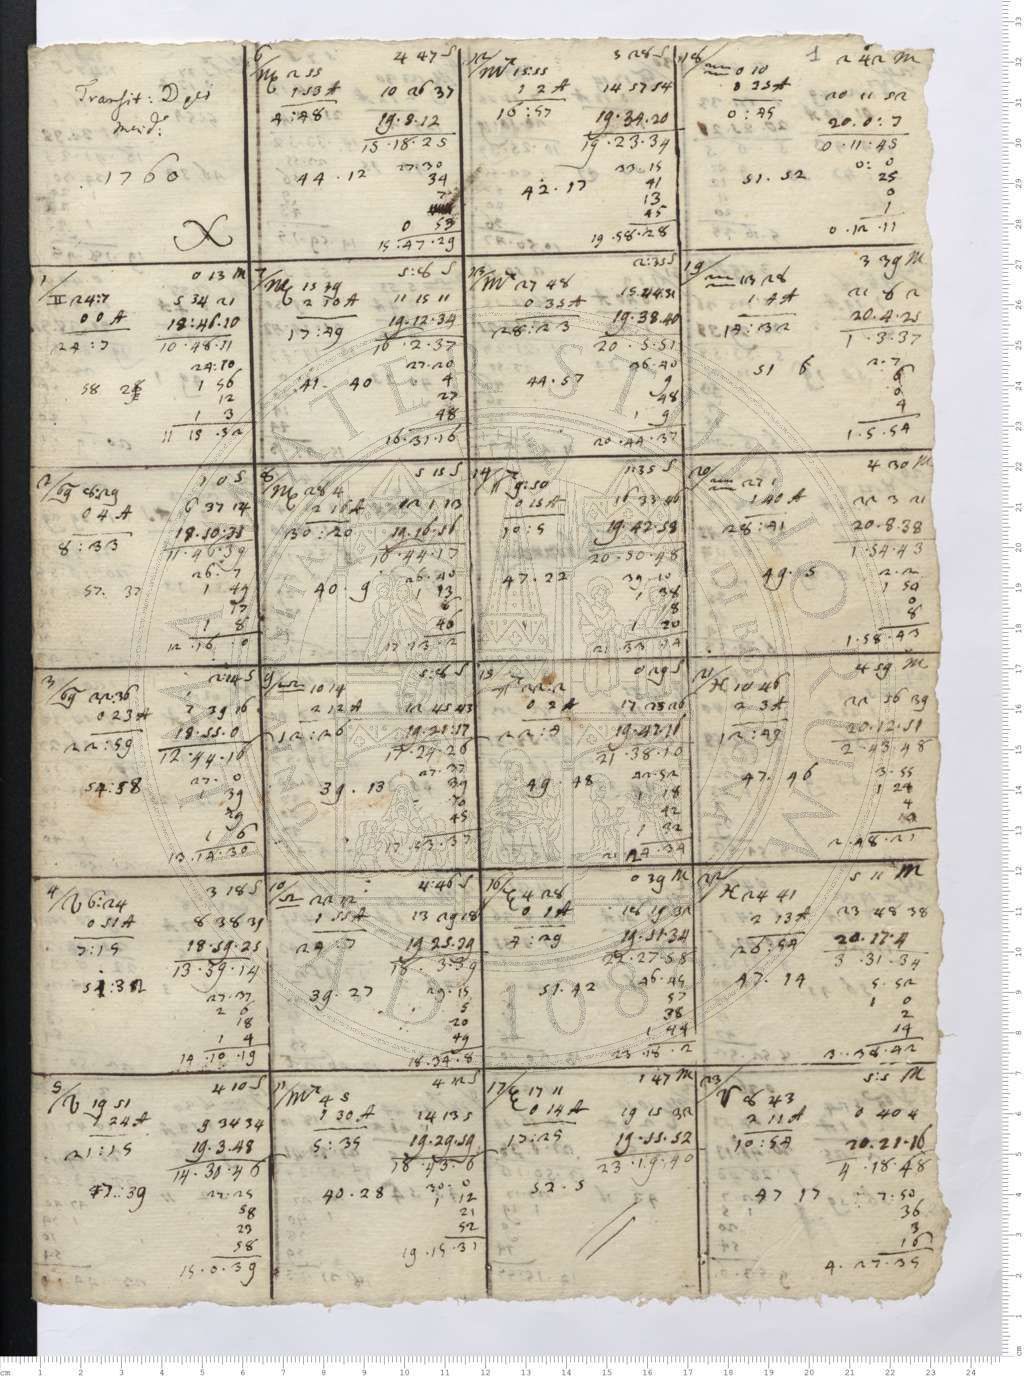 Transit: D per
merid:
1760
6 4 47 S
2 55
1 53 A 10 26 37
4:48 19.8.12
15.18.25
27.30
44.12 34
7
0 53
15.47.29
12 3 28 S
15 55
1 2 A 14 57 54
16:57 19.34.20
19.23.34
33.15
42.17 41
13
45
19.58.28
18 1 2 42 M
0 10
0 25 A 20 11 52
0:45 20.0:7
0.11:45
0:0
51.52 25
0
1
0.12.11
1 0 13 M
II 24:7 5 34 21
0 0 A 18:46.10
24:7 10.48.11
24:10
58 1 56
12
1 3
11 15.32
7 5:6 S
15 39
2 10 A 11 15 11
17:49 19.12.34
16.2.37
27.20
41.40 4
27
48
16.31.16
13 2:35 S
27 48
0 35 A 15.44.31
28:23 19.38.40
20.5.51
36.40
44.57 9
48
1 9
20.44.37
19 3 39 M
13 28
1 4 A 21 6 2
14:32 20.4.25
1.3.37
2.7
51 6 6
0
4
1.5.54
2 1 0 S
8:29 6 37 14
0 4 A 18.50:35
8:33 11.46.39
26.7
57.37 1 49
17
1 8
12.16.0
8 5 15 S
28 4
2 16 A 12 1 13
30:20 19.16.56
16.44.17
26.40
40.9 1 13
6
46
17 13.2
14 1:35 S
9:50
0 15 A 16 33 46
10:5 19.42.58
20.50.48
39.10
47.22 1 38
18
1 20
21.33.14
20 4 30 M
27 1
1 40 A 22 3 21
28:41 20.8.38
1.54.43
2.2
49.5 1 50
0
8
1.58.43
3 2 14 S
22:36
0 23 A 7 39 16
22:59 18.55.0
12.44.16
27.0
54:58 1 39
29
1 6
13.14.30
9 5:6 S
10 14
2 12 A 12 45 43
12:26 19.21:17
17.24.26
27.37
39.13 39
10
45
17.53.37
15 0 29 S
22:2
0 2 A 17 25 26
22:4 19.47.16
21.38.10
42.52
49.48 1 18
42
1 32
22.24.34
21 4 59 M
10 46
2 3 A 22 56 39
12:49 20.12.51
2.43.48
3.55
47.46 1 24
4
10
2.48.21
4 3 18 S
6:24
0 51 A 8 38 39
7:15 18.59.25
13.39.14
54:32 27.37
2 6
18
1 4
14.10.19
10 4:46 S
22 12
1 55 A 13 29 18
24:7 19.25.39
18.3:39
29.15
39.27 5
20
49
18.34.8
16 0 39 M
4 28
0 1 A 18 19 32
4:29 19.51.34
22.27.58
46.45
51.42 57
38
1 44
23.18.2
22 5 11 M
24 41
2 13 A 23 48 38
26:54 20.17.4
3.31.34
47.14 5.52
1 0
2
14
3.38.42
5 4 10 S
19 51
1 24 A 9 34 34
21:15 19.3.48
14.30.46
47:39 27.25
58
23
58
15.0.39
11 4 12 S
4 5
1 30 A 14 13 5
5:35 19.29.59
18.43.6
30.0
40.28 1 12
21
52
19.15.31
17 1 47 M
17 11
0 14 A 19 15 32
17:25 19.55.52
23.19.40
52.5
23 5:5 M
8 43
2 11 A 0 40 4
10:54 20.21.16
4.18.48
47 17 7:50
36
3
16
4.27.35